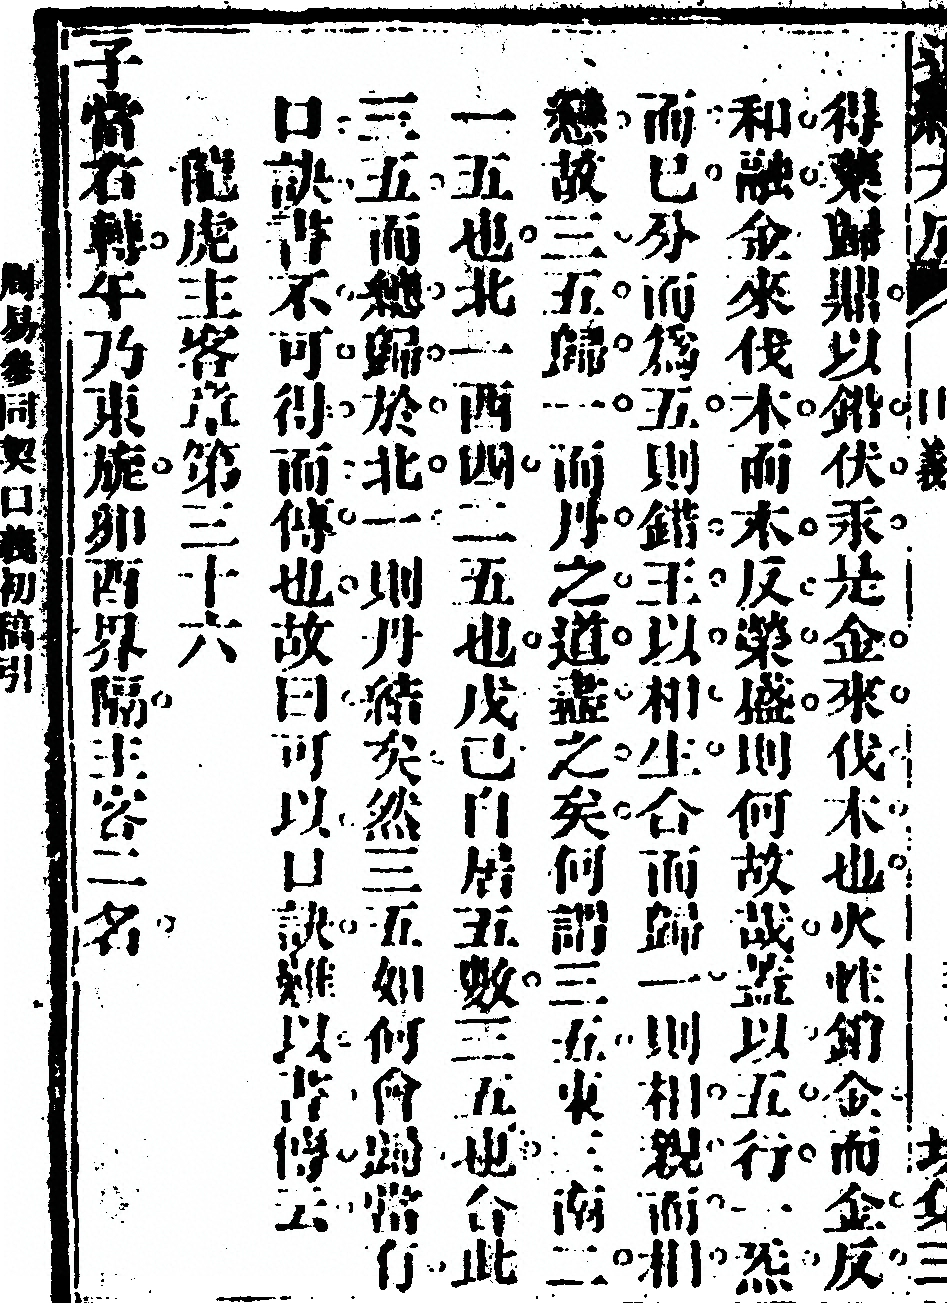 得藥歸鼎以鉛伏汞是金來伐木也火性銷金而金反
和融金來伐木而木反榮盛則何故哉蓋以五行一炁
而已分而爲五則錯王以相生合而歸一則相親而相
戀故三五歸一而丹之道盡之矣何謂三五東三南二
一五也北一西四二五也戊己自居五數三五也合此
三五而總歸於北一則丹結矣然三五如何會歸當有
口訣書不可得而傳也故曰可以口訣難以書傳云
龍虎主客章第三十六
子當右轉午乃東旋卯酉界隔主客二名
周易參同契口義初稿引